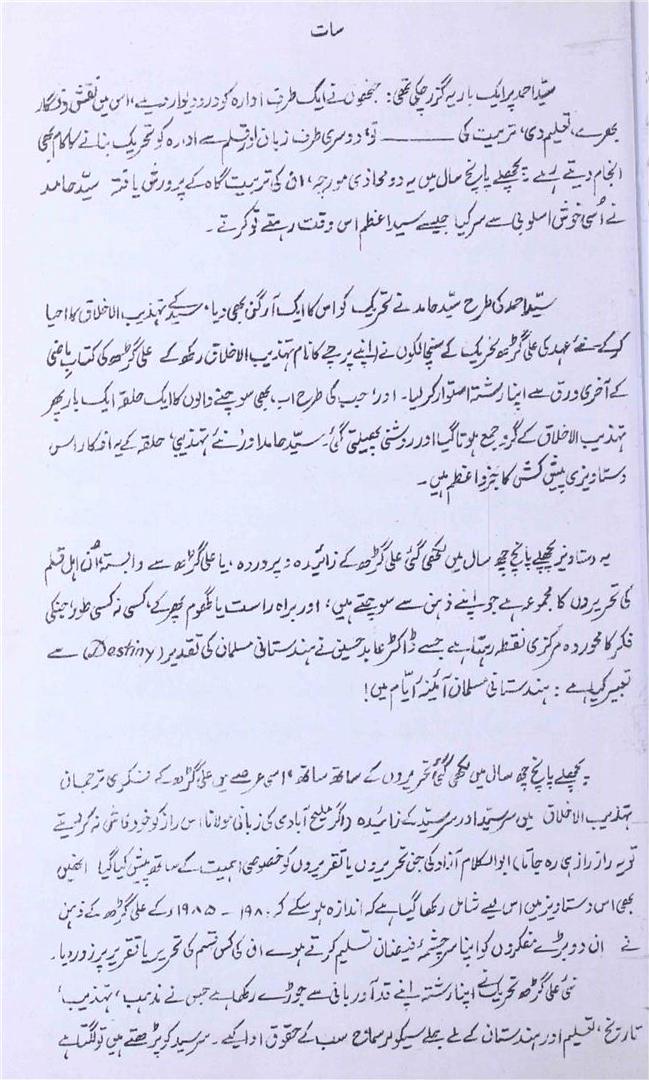 سات
سیّد احمد پر ایک بار یہ گزر چکی تھی: جنھوں نے ایک طرف ادارہ کو در و دیوار دیے، اس میں نقش و نگار
بھرے، تعلیم دی، تربیت کی ——— تو دوسری طرف زبان اور قلم سے ادارہ کو تحریک بنانے کا کام بھی
انجام دیتے رہے۔ پچھلے پانچ سال میں یہ دو محاذی مورچہ، ان کی تربیت گاہ کے پرورش یافتہ سیّد حامد
نے اُسی خوش اسلوبی سے سر کیا جیسے سید اعظم اس وقت رہتے تو کرتے۔
سیّد احمد کی طرح سیّد حامد نے تحریک کو اس کا ایک آرگن بھی دیا، سیّد کے تہذیب الاخلاق کا احیا
کر کے نئے عہد کی علی گڑھ تحریک کے سنچالکوں نے اپنے پرچے کا نام تہذیب الاخلاق رکھ کے علی گڑھ کی کتابِ ماضی
کے آخری ورق سے اپنا رشتہ استوار کر لیا۔ اور، جب کی طرح اب، بھی سوچنے والوں کا ایک حلقہ ایک بار پھر
تہذیب الاخلاق کے گرد جمع ہوتا گیا اور روشنی پھیلتی گئی۔ سیّد حامد اور، نئے تہذیبی، حلقہ کے یہ افکار اس
دستاویزی پیش کش کا جزو اعظم ہیں۔
یہ دستاویز پچھلے پانچ چھ سال میں لکھی گئی علی گڑھ کے زائیدہ و پروردہ، یا علی گڑھ سے وابستہ، اُن اہل قلم
کی تحریروں کا مجموعہ ہے جو اپنے ذہن سے سوچتے ہیں؛ اور براہ راست یا گھوم پھر کے، کسی نہ کسی طور، جنکی
فکر کا محور وہ مرکزی نقطہ رہتا ہے جسے ڈاکٹر عابد حسین نے ہندستانی مسلمان کی تقدیر (Destiny) سے
تعبیر کیا ہے: ہندستانی مسلمان آئینۂ ایّام میں!
پچھلے پانچ چھ سال میں لکھی گئی تحریروں کے ساتھ ساتھ، اسی عرصے میں علی گڑھ کے فکری ترجمان
تہذیب الاخلاق میں سر سیّد اور سر سیّد کے زائیدہ (اگر ملیح آبادی کی زبانی مولانا اس راز کو خود فاش نہ کر دیتے
تو یہ راز راز ہی رہ جاتا) ابو الکلام آزاد کی جن تحریروں یا تقریروں کو خصوصی اہمیت کے ساتھ پیش کیا گیا انھیں
بھی اس دستاویز میں اس لیے شامل رکھا گیا ہے کہ اندازہ ہو سکے کہ ۱۹۸۰ - ۱۹۸۵ء کے علی گڑھ کے ذہن
نے ان دو بڑے مفکروں کو اپنا سر چشمۂ فیضان تسلیم کرتے ہوے ان کی کس قسم کی تحریر یا تقریر پر زور دیا۔
نئی علی گڑھ تحریک نے اپنا رشتہ اپنے قد آور بانی سے جوڑے رکھا ہے جس نے مذہب، تہذیب،
تاریخ، تعلیم اور ہندستان کے ملے جلے سیکولر سماج سب کے حقوق ادا کیے۔ سر سید کو پڑھتے ہیں تو لگتا ہے